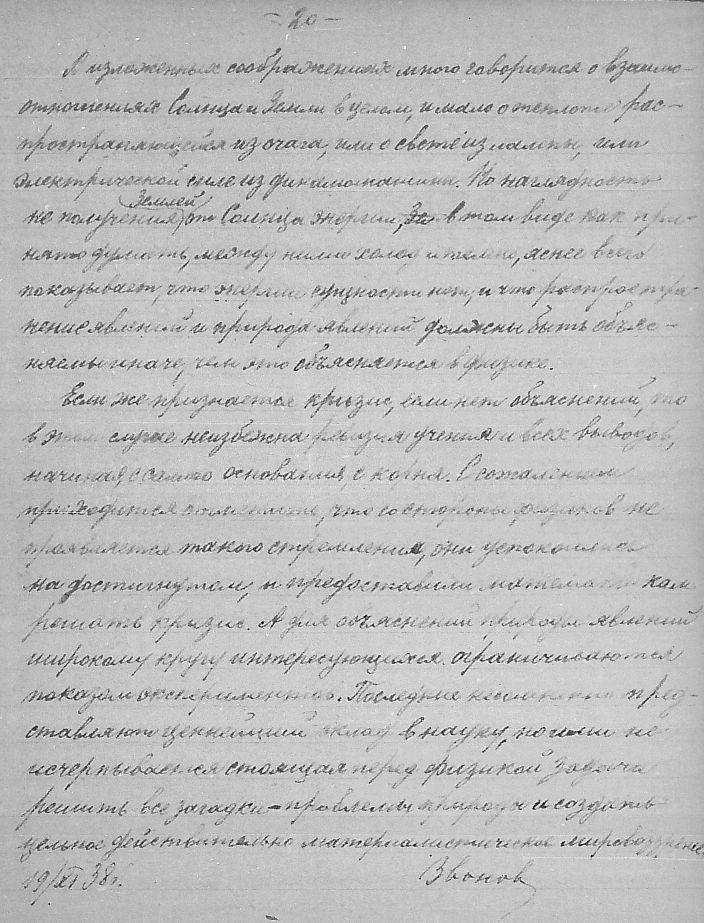 - 20 -
В изложенных соображениях много говорится о взаимо-
отношениях Солнца и Земли в целом, и мало о теплоте рас-
пространяющейся из очага, или о свете из лампы, или
электрической силе из динамомашины. Но наглядность
не получения Землей от Солнца энергии, в том виде как при-
нято думать, между ними холод и темно, яснее всего
показывает, что энергии сущности нет, и что распростра-
нение явлений и природа явлений должны быть объяс-
няемы иначе, чем это объясняется в физике.
Если же признается кризис, если нет объяснений, то
в этом случае неизбежна ревизия учения и всех выводов,
начиная с самого основания, с корня. С сожалением
приходится отметить, что со стороны физиков не
проявляется такого стремления, они успокоились
на достигнутом, и предоставили математикам
решать кризис. А для объяснений природы явлений
широкому кругу интересующихся ограничиваются
показом экспериментов. Последние несомненно пред-
ставляют ценнейший вклад в науку, но ими не
исчерпывается стоящая перед физикой задача
решить все загадки - проблемы природы и создать
цельное действительно материалистическое мировоззрение
19/XI 38 г. Звонов